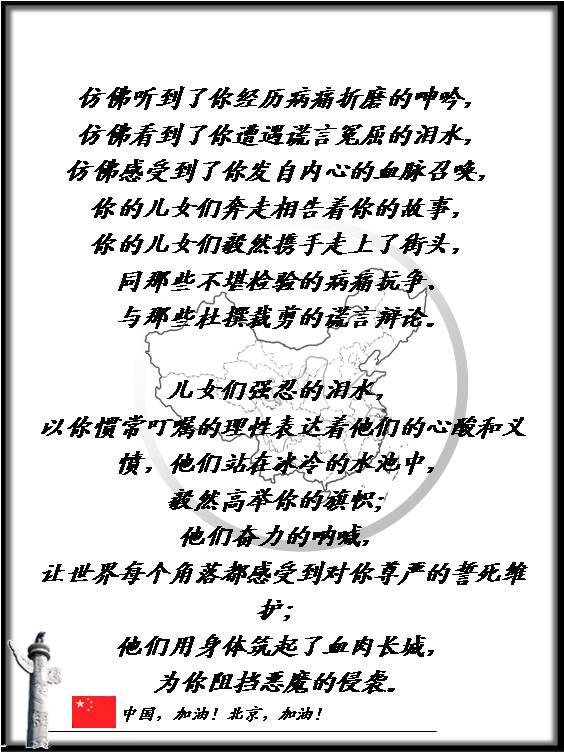 仿佛听到了你经历病痛折磨的呻吟，
仿佛看到了你遭遇谎言冤屈的泪水，
仿佛感受到了你发自内心的血脉召唤，
你的儿女们奔走相告着你的故事，
你的儿女们毅然携手走上了街头，
同那些不堪检验的病痛抗争、
与那些杜撰裁剪的谎言辩论。
儿女们强忍的泪水，
以你惯常叮嘱的理性表达着他们的心酸和义
愤，他们站在冰冷的水池中，
毅然高举你的旗帜；
他们奋力的呐喊，
让世界每个角落都感受到对你尊严的誓死维
护；
他们用身体筑起了血肉长城，
为你阻挡恶魔的侵袭。
中国，加油！北京，加油！